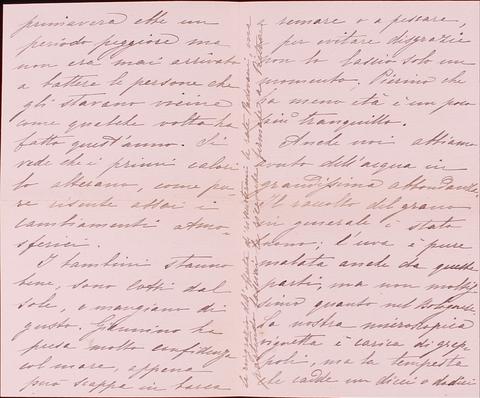 primavera ebbe un
periodo peggiore ma
non era mai arrivato
a battere le persone che
gli stavano vicine
come qualche volta ha
fatto quest'anno. Si
vede che i primi calori
lo alterano, come pu-
re risente assai i
cambiamenti atmo-
sferici.
I bambini stanno
bene, sono cotti dal
sole, e mangiano di
gusto. Giannino ha
presa molta confidenza
col mare, appena
può scappa in barca
a remare o a pescare,
e per evitare disgrazie
non lo lascio solo un
momento. Pierino che
ha meno età è un poco
più tranquillo.
Anche noi abbiamo
avuto dell'acqua in
grandissima abbondanza.
Il raccolto del grano
in generale è stato
buono; l'uva è pure
malata anche da queste
parti, ma non moltis-
simo quanto nel bolognese.
La nostra microscopica
vignetta è carica di grap-
poli, ma la tempesta
che cadde un dieci o dodici